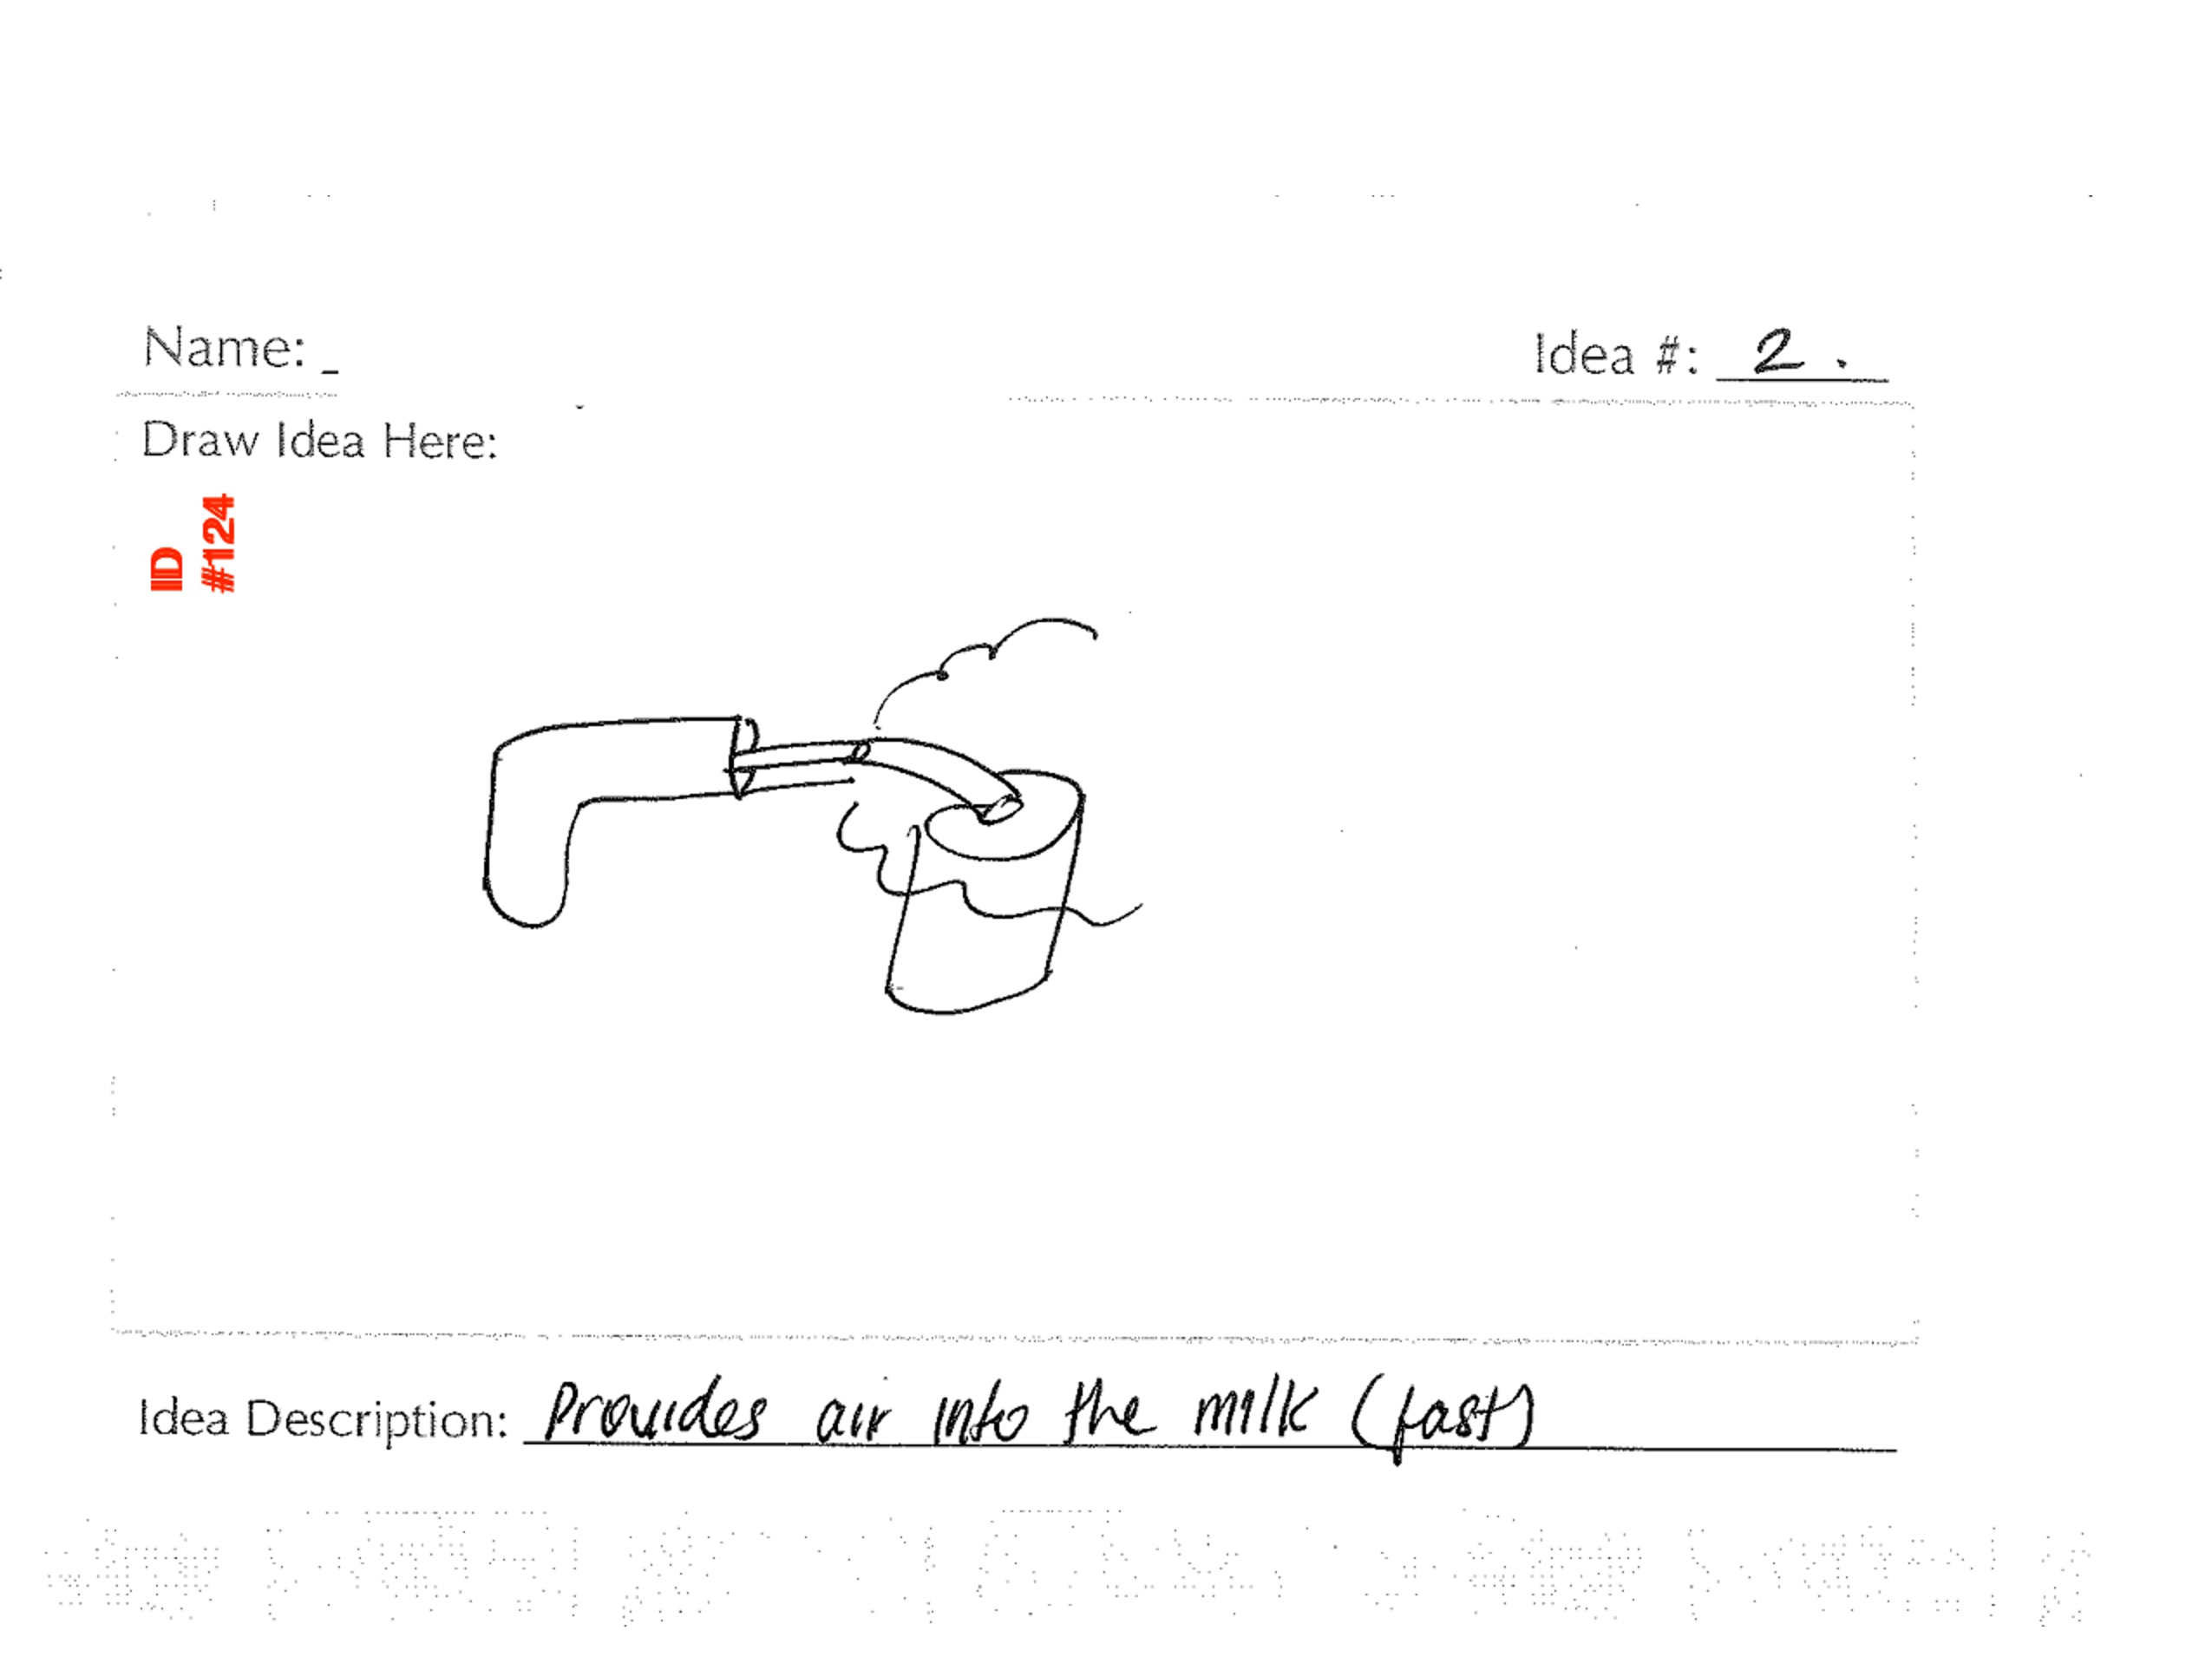 Name: _
Idea #: 2.
Draw Idea Here:
ID
#124
Idea Description: Provides air into the milk (fast)